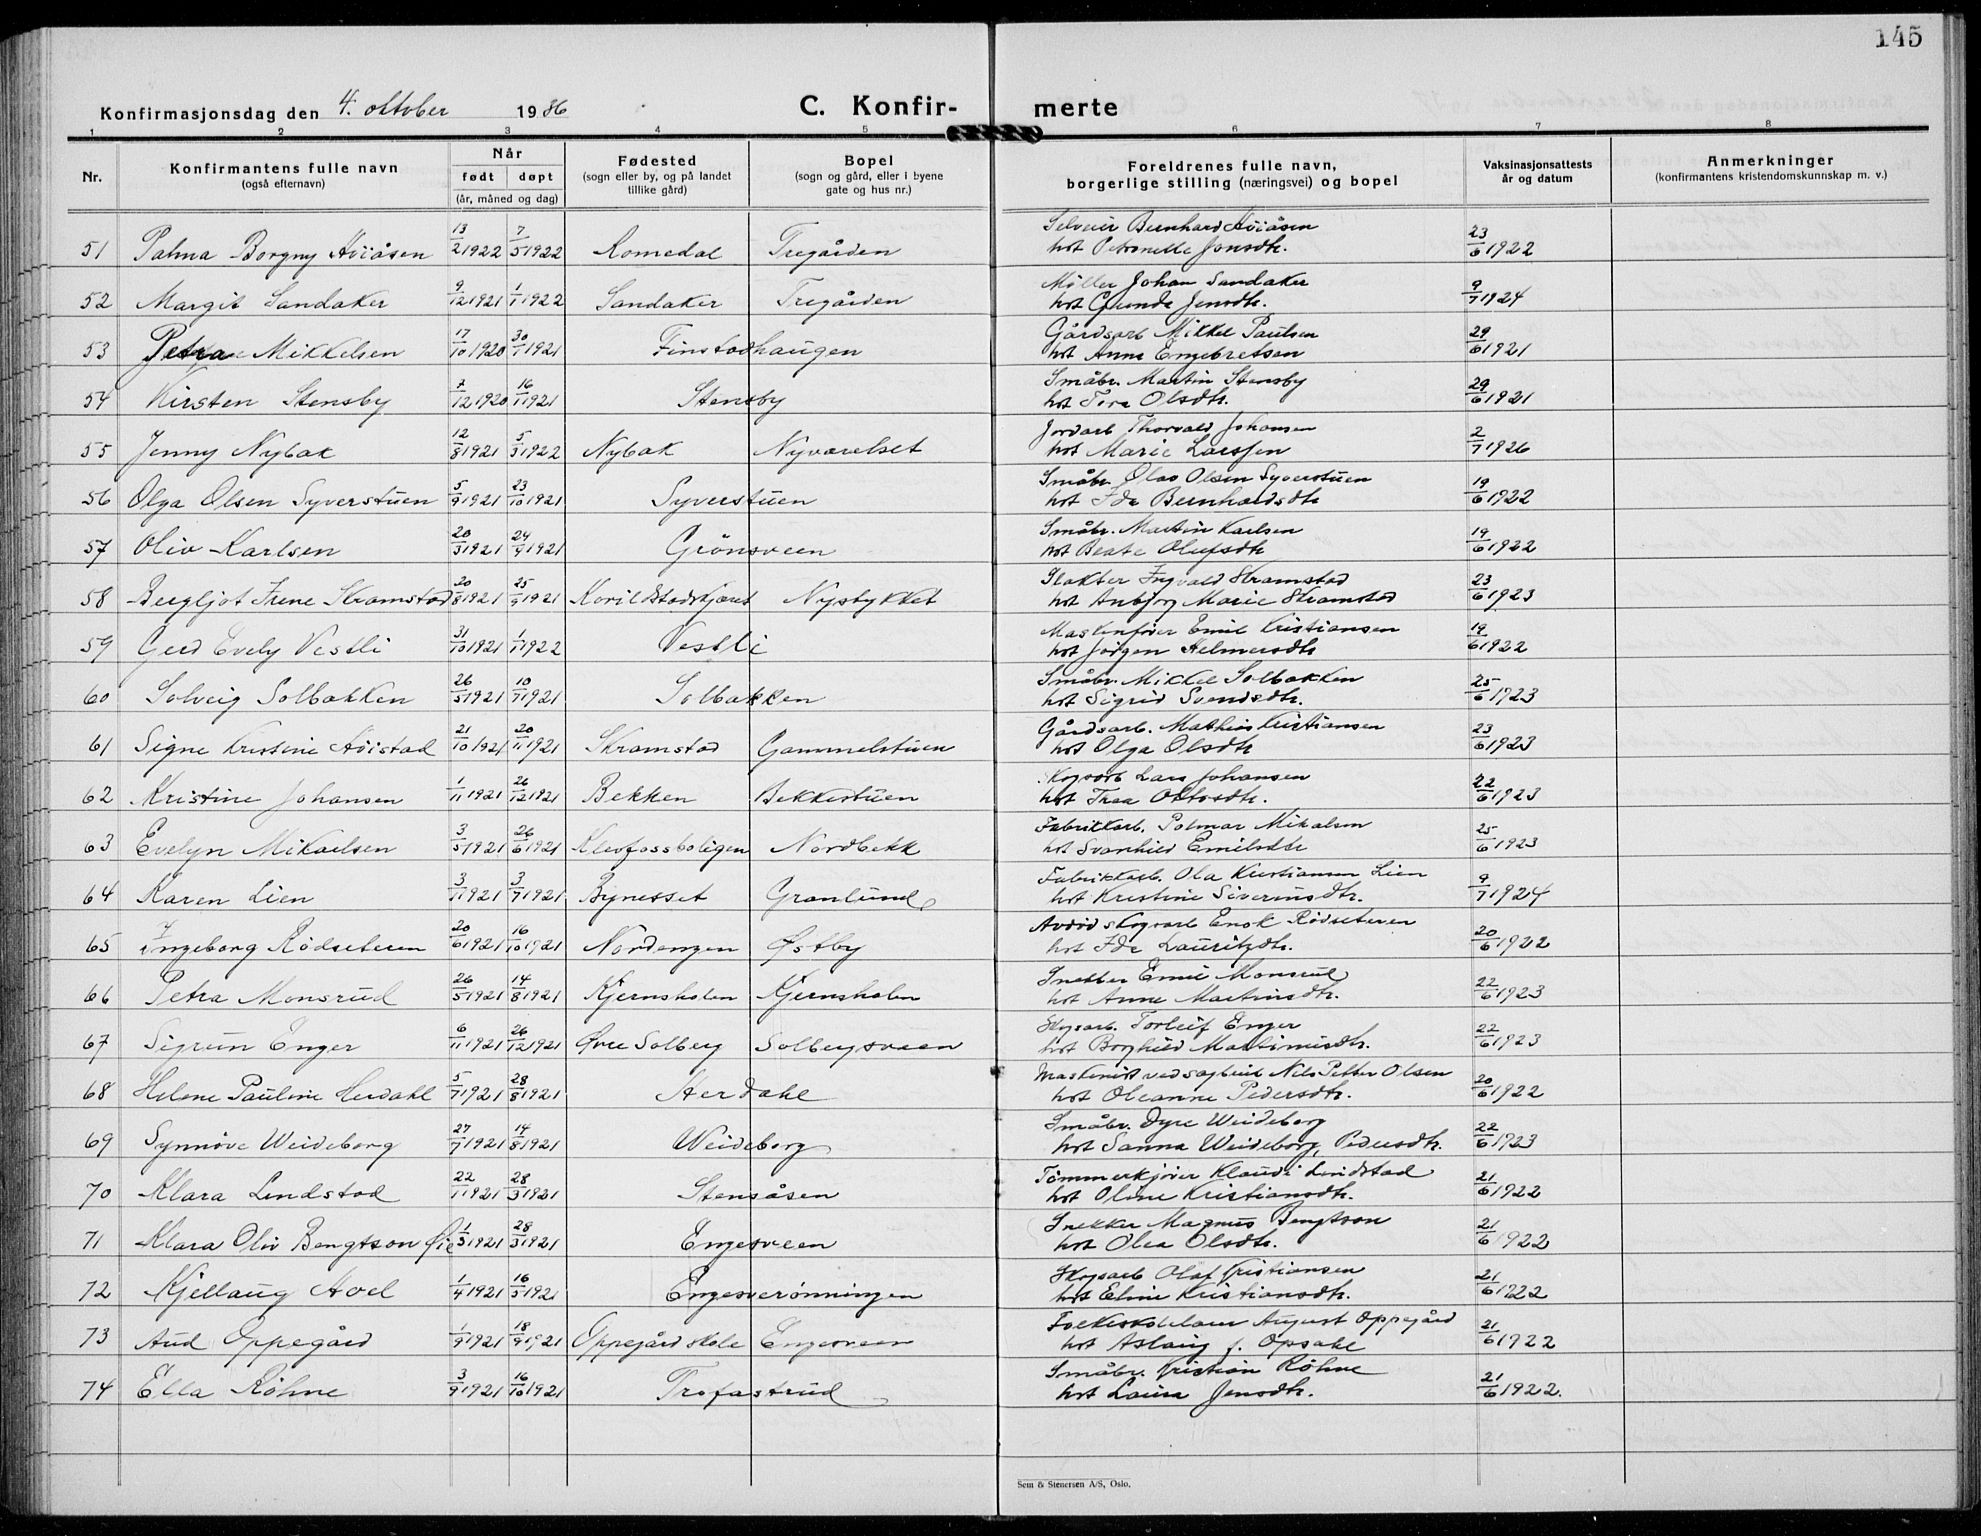 145
Konfirmasjonsdag den 4. oktober 1936
C. Konfir- merte
1 2 3 4 5 6 7 8
Nr.
Konfirmantens fulle navn
(også efternavn)
Når
født døpt
(år, måned og dag)
Fødested
(sogn eller by, og på landet
tillike gård)
Bopel
(sogn og gård, eller i byene
gate og hus nr.)
Foreldrenes fulle navn,
borgerlige stilling (næringsvei) og bopel
Vaksinasjonsattests
år og datum
Anmerkninger
(konfirmantens kristendomskunnskap m. v.)
Bernhard Hviåsen
51 Palma Borgny Hviåsen 13/2 1922 7/5 1922 Romedal Tregården hst Petronelle Jonsdtr. 23/6 1922
Møller Johan Sandaker
52 Margit Sandaker 9/12 1921 1/1 1922 Sandaker Tregården hst Gunda Jensdtr. 9/7 1924
Gårdsarb Mikkel Paulsen
53 Petra Mikkelsen 17/10 1920 30/1 1921 Finstadhaugen hst Anna Engebretsen 29/6 1921
Småbr. Martin Stensby
54 Kirsten Stensby 7/12 1920 16/1 1921 Stensby hst Tora Olsdtr. 29/6 1921
Jordarb Thorvald Johansen
55 Jenny Nybak 12/8 1921 5/3 1922 Nybak hst Marie Larssen 2/7 1926
Småbr. Olav Olsen Syverstuen
56 Olga Olsen Syverstuen 5/9 1921 23/10 1921 Syverstuen hst Ida Bernhardsdtr 19/6 1922
Småbr. Martin Karlsen
57 Oliv Karlsen 20/3 1921 24/4 1921 Grønsveen hst Beate Olufsdtr 19/6 1922
Slakter Ingvald Skramstad
58 Bergljot Irene Skramstad 20/8 1921 25/9 1921 Nysbykket hst Anbjørg Marie Skramstad 23/6 1923
Maskinfører Emil Kristiansen
59 Gerd Evely Vestli 31/10 1921 1/1 1922 Vestli hst Jørgen Helmersdtr 19/6 1922
Småbr. Mikkel Solbakken
60 Solveig Solbakken 26/5 1921 10/7 1921 Solbakken hst Sigrid Svendsdtr. 25/6 1923
Gårdsarb. Mathias Kristiansen
61 Signe Kristine Hvistad 21/10 1921 20/11 1921 Skramstad Gammelstuen hst Olga Olsdtr 23/6 1923
Skogsarb Lars Johansen
62 Kristine Johansen 1/11 1921 26/12 1921 Bekken Bekkestuen hst Thea Ottosdtr. 22/6 1923
Fabrikkarb. Palmar Mikalsen
63 Evelyn Mikaelsen 3/5 1921 26/6 1921 Klevfossboligen Nordbekk hst Svanhild Emilsdtr 25/6 1923
Fabrikkarb. Ola Kristiansen Lien
64 Karen Lien 3/1 1921 3/7 1921 Bynesset Granlund hst Kristine Siverinsdtr. 9/7 1924
Avdød skogsarb Enok Rødseteren
65 Ingeborg Rødseteren 20/6 1921 16/10 1921 Nordengen Østby hst Ida Lauritzdtr. 20/6 1922
Snekker Emil Monsrud
66 Petra Monsrud 26/5 1921 14/8 1921 Kjernsholen Kjernsholen hst Anne Martinsdtr. 22/6 1923
Skogsarb. Torleif Enger
67 Sigrun Enger 6/11 1921 26/12 1921 Øvre Solberg Solbergsveen hst Borghild Martiniusdtr. 22/6 1923
Maskinist ved sagbruk Nils Petter Olsen
68 Helene Pauline Herdahl 5/7 1921 28/8 1921 Herdahl hst Oleanne Pedersdtr. 20/6 1922
Småbr. Dyre Weideborg
69 Synnøve Weideborg 27/7 1921 14/8 1921 Weideborg hst Sanna Weideborg, Pedersdtr. 22/6 1923
Tømmerkjører Klaudi Lundstad
70 Klara Lundstad 22/1 1921 28/3 1921 Stensåsen hst Oline Kristiansdtr. 21/6 1922
Snekker Magnus Bengtson
71 Klara Oliv Bengtson Øie 1/3 1921 28/3 1921 Engesveen hst Olea Olsdtr. 21/6 1922
Skogsarb Olaf Kristiansen
72 Kjellaug Hoel 1/4 1921 16/5 1921 Engesverønningen hst Eline Kristiansdtr. 21/6 1922
Folkeskolelærer August Oppegård
73 Aud Oppegård 1/9 1921 18/9 1921 Oppegård skole Engesveen hst Aslaug f. Opsahl 21/6 1922
Småbr. Kristian Røhne
74 Ella Røhne 3/9 1921 16/10 1921 Trofastrud hst Laura Jensdtr. 21/6 1922.
Sem & Stenersen A/S, Oslo.